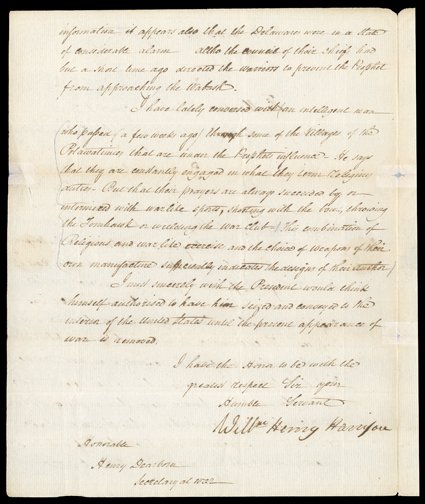 information it appears also that the Delawares were in a State
of considerable alarm altho the council of their chiefs had
but a short time ago directed the warriors to prevent the Prophet
from approaching the Wabash.
I have lately conversed with an intelligent man
who passed a few weeks ago through some of the Villages of the
Potawatimies that are under the Prophets influence. He says
that they are constantly engaged in what they term Religious
duties. But that their prayers are always succeeded by or
intermixed with warlike sports, shooting with the bow, throwing
the Tomhawk or wielding the war club. This combination of
Religious and warlike exercise and the choice of weapons of their
own manufacture sufficiently indicates the designs of their author
I most sincerely wish the President would think
himself authorised to have him seized and conveyed to the
interior of the United States until the present appearance of
war is removed.
I have the Honor to be with the
greatest respect Sir your
Humble Servant
Willm Henry Harrison
Honorable
Henry Dearborn
Secretary of War